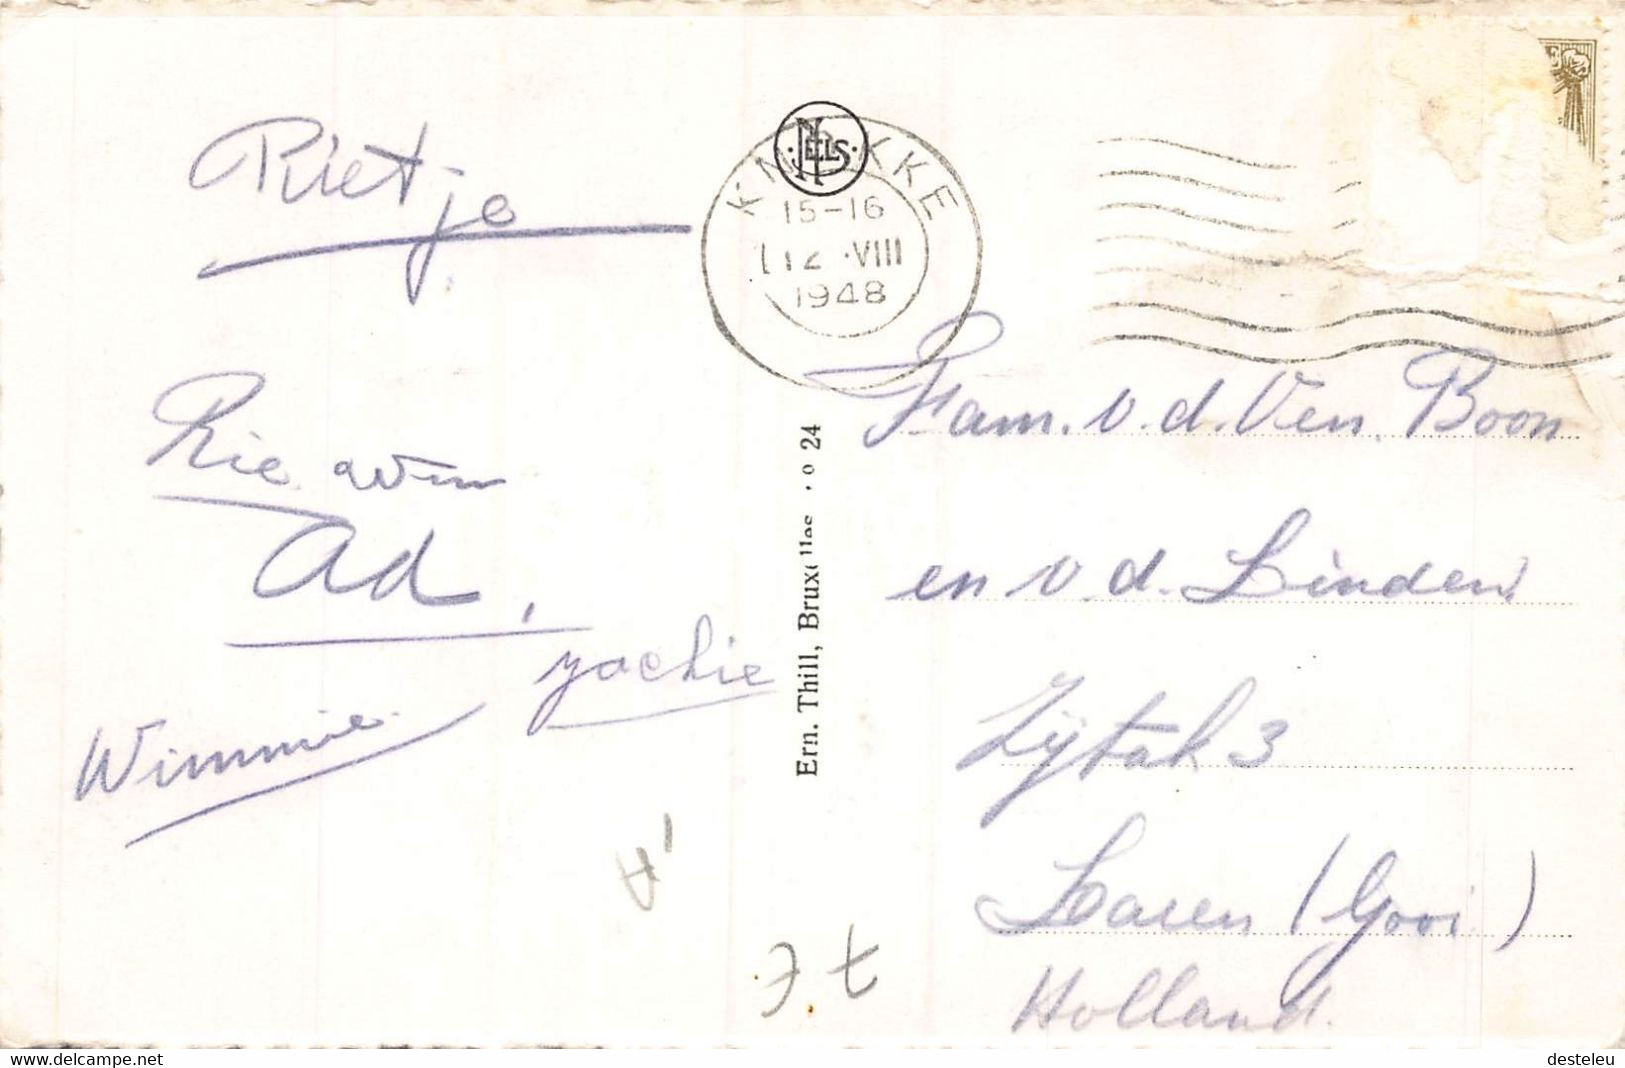 Rietje
Rie
Ad,
Jackie
Wimmie
NELS
KNOKKE
15-16
12 VIII
1948
Ern. Thill, Bruxelles. No 24
Fam. v. d. Ven, Boon
en v. d. Linden
Zijtak 3
Laren (Gooi)
Holland.
delcampe.net
desteleu